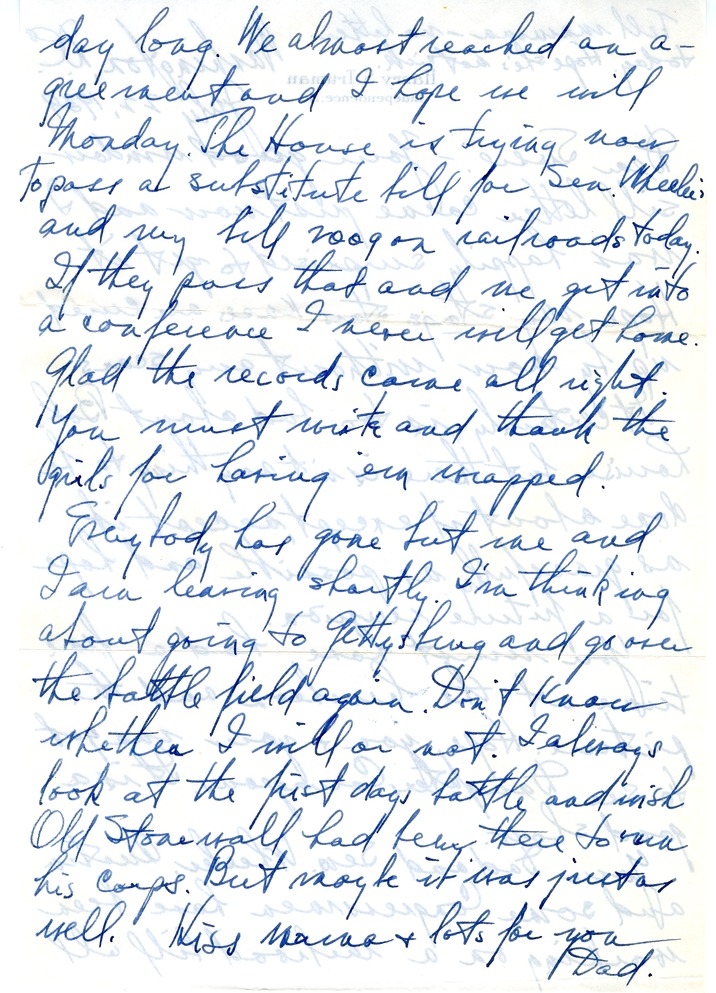 day long. We almost reached an a-
greement and I hope we will
Monday. The House is trying now
to pass a substitute bill for Sen. Wheeler's
and my bill 2009 on railroads today.
If they pass that and we get into
a conference I never will get home.
Glad the records came all right.
You must write and thank the
girls for having 'em wrapped.
Everybody has gone but me and
I am leaving shortly. I'm thinking
about going to Gettysburg and go over
the battle field again. Don't know
whether I will or not. I always
look at the first days battle and wish
Old Stonewall had been there to run
his corps. But maybe it was just as
well. Kiss mama & lots for you
Dad.